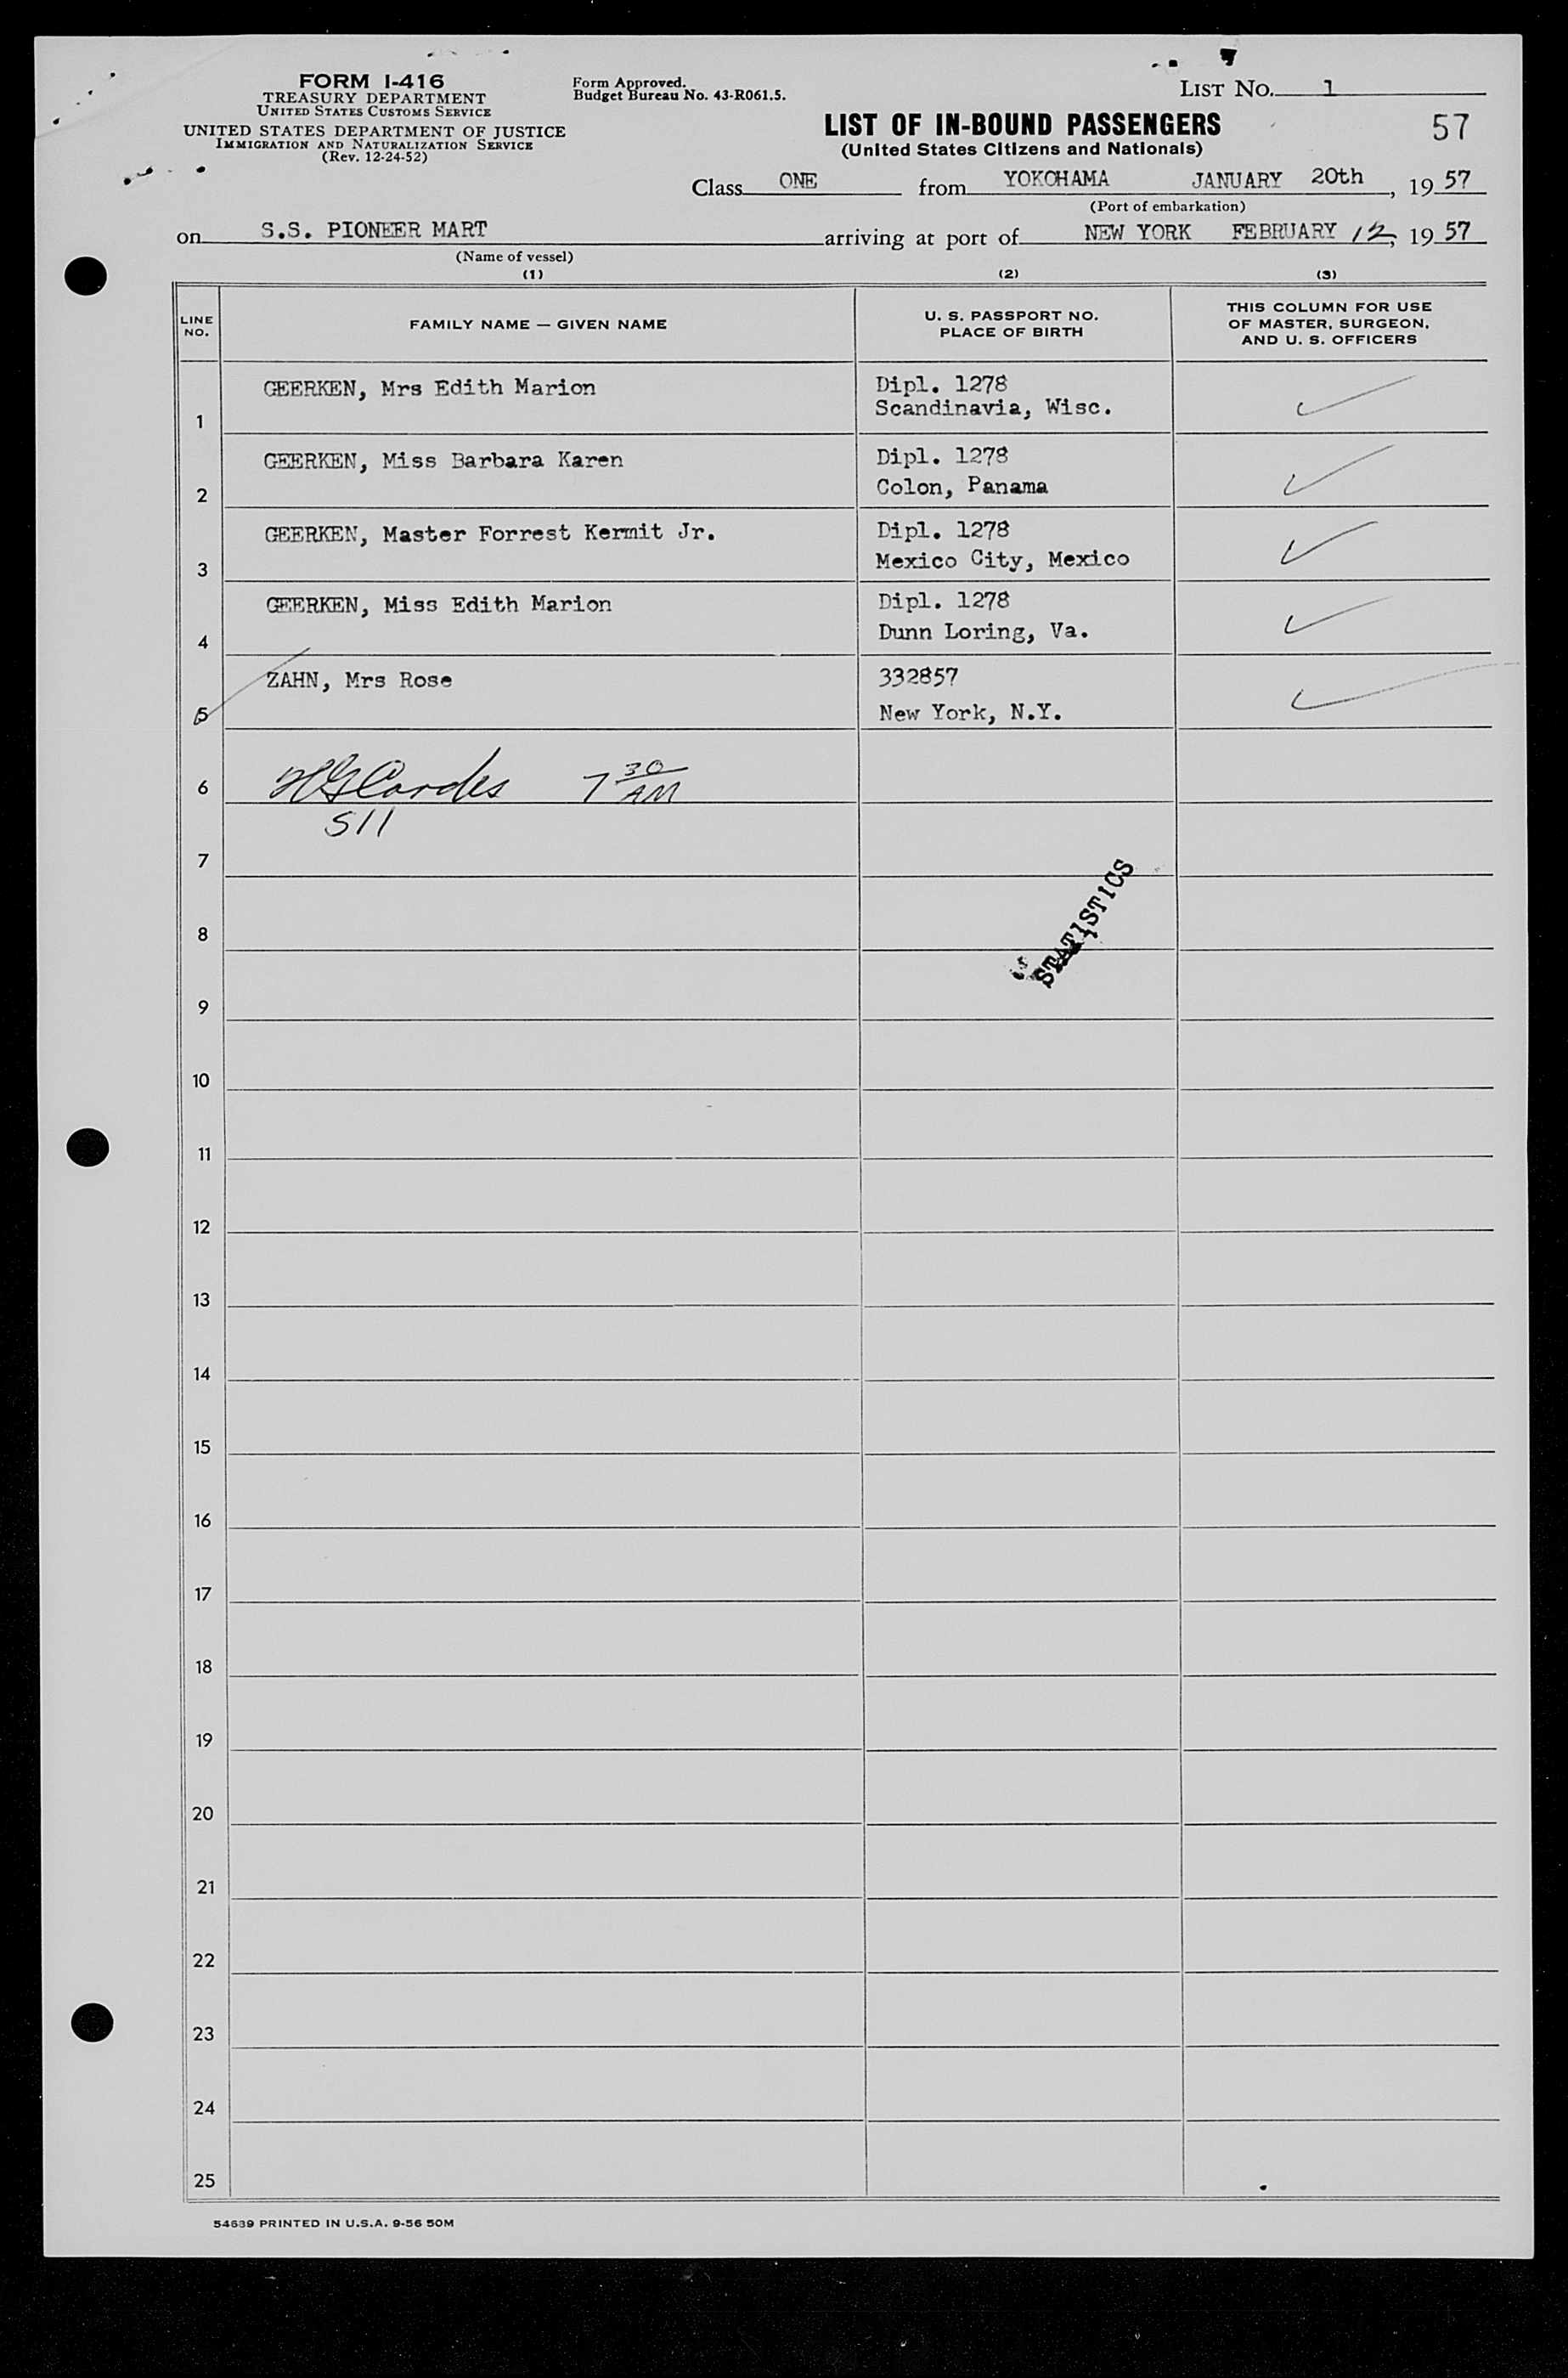 FORM I-416
TREASURY DEPARTMENT
UNITED STATES CUSTOMS SERVICE
UNITED STATES DEPARTMENT OF JUSTICE
IMMIGRATION AND NATURALIZATION SERVICE
(Rev. 12-24-52)
Form Approved.
Budget Bureau No. 43-R061.5.
LIST NO. 1
57
LIST OF IN-BOUND PASSENGERS
(United States Citizens and Nationals)
Class ONE from YOKOHAMA JANUARY 20th, 19 57
(Port of embarkation)
on S.S. PIONEER MART arriving at port of NEW YORK FEBRUARY 12, 19 57
(Name of vessel)
(1) (2) (3)
LINE NO. FAMILY NAME — GIVEN NAME U. S. PASSPORT NO. PLACE OF BIRTH THIS COLUMN FOR USE OF MASTER, SURGEON, AND U. S. OFFICERS
GEERKEN, Mrs Edith Marion Dipl. 1278
1 Scandinavia, Wisc.
GEERKEN, Miss Barbara Karen Dipl. 1278
2 Colon, Panama
GEERKEN, Master Forrest Kermit Jr. Dipl. 1278
3 Mexico City, Mexico
GEERKEN, Miss Edith Marion Dipl. 1278
4 Dunn Loring, Va.
ZAHN, Mrs Rose 332857
5 New York, N.Y.
6 7 30 AM
511
7
STATISTICS
8
9
10
11
12
13
14
15
16
17
18
19
20
21
22
23
24
25
54639 PRINTED IN U.S.A. 9-56 50M